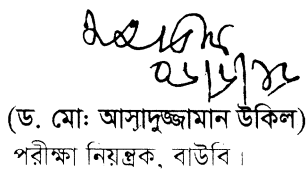 (ড. মোঃ আসাদুজ্জামান উকিল)
পরীক্ষা নিয়ন্ত্রক, বাউবি।